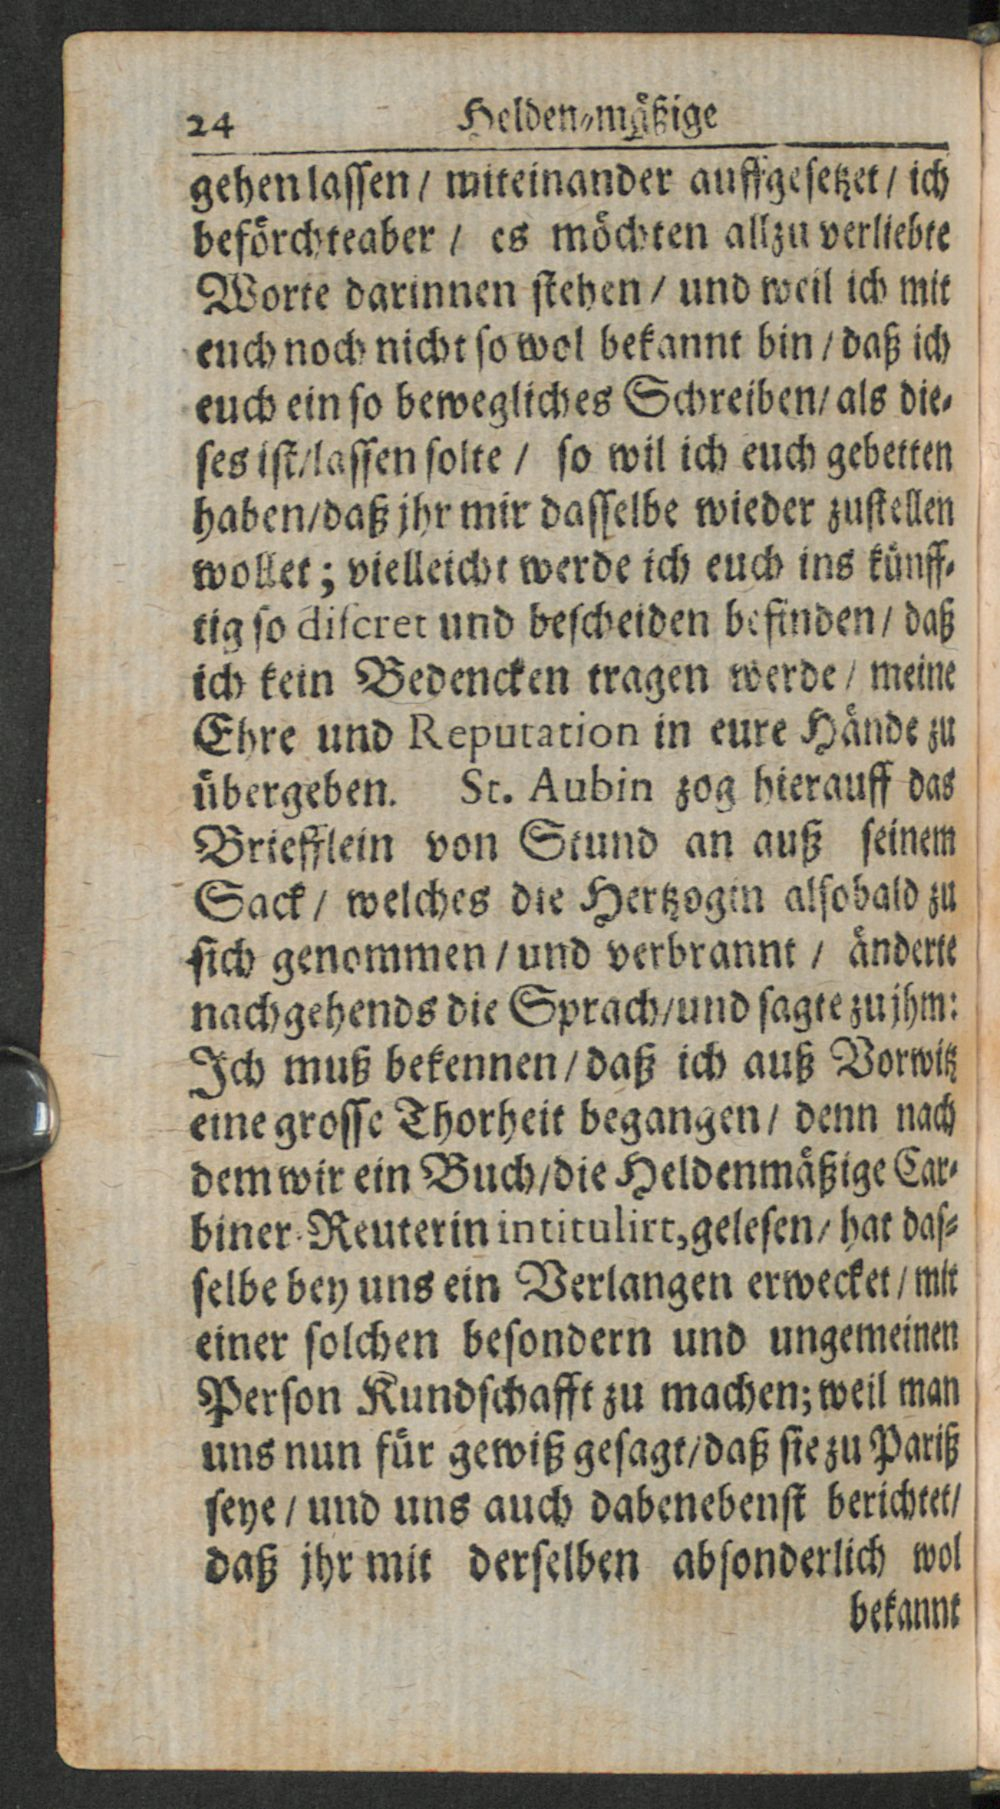 24 Helden-mäßige
gehen lassen / miteinander auffgesetzet / ich
beförchte aber / es möchten allzu verliebte
Worte darinnen stehen / und weil ich mit
euch noch nicht so wol bekannt bin / daß ich
euch ein so bewegliches Schreiben / als die-
ses ist / lassen solte / so wil ich euch gebetten
haben / daß jhr mir dasselbe wieder zustellen
wollet; vielleicht werde ich euch ins künff-
tig so discret und bescheiden befinden / daß
ich kein Bedencken tragen werde / meine
Ehre und Reputation in eure Hände zu
übergeben. St. Aubin zog hierauff das
Briefflein von Stund an auß seinem
Sack / welches die Hertzogin alsobald zu
sich genommen / und verbrannt / änderte
nachgehends die Sprach / und sagte zu jhm:
Ich muß bekennen / daß ich auß Vorwitz
eine grosse Thorheit begangen / denn nach
dem wir ein Buch / die Heldenmäßige Car-
biner-Reuterin intitulirt, gelesen / hat das-
selbe bey uns ein Verlangen erwecket / mit
einer solchen besondern und ungemeinen
Person Kundschafft zu machen; weil man
uns nun für gewiß gesagt / daß sie zu Pariß
seye / und uns auch dabenebenst berichtet /
daß jhr mit derselben absonderlich wol
bekannt